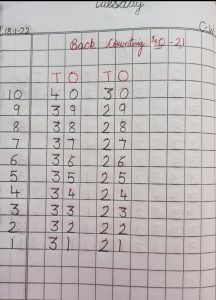 Tuesday
18-1-22
C.W
Back counting 40-21
T O T O
10 4 0 3 0
9 3 9 2 9
8 3 8 2 8
7 3 7 2 7
6 3 6 2 6
5 3 5 2 5
4 3 4 2 4
3 3 3 2 3
2 3 2 2 2
1 3 1 2 1